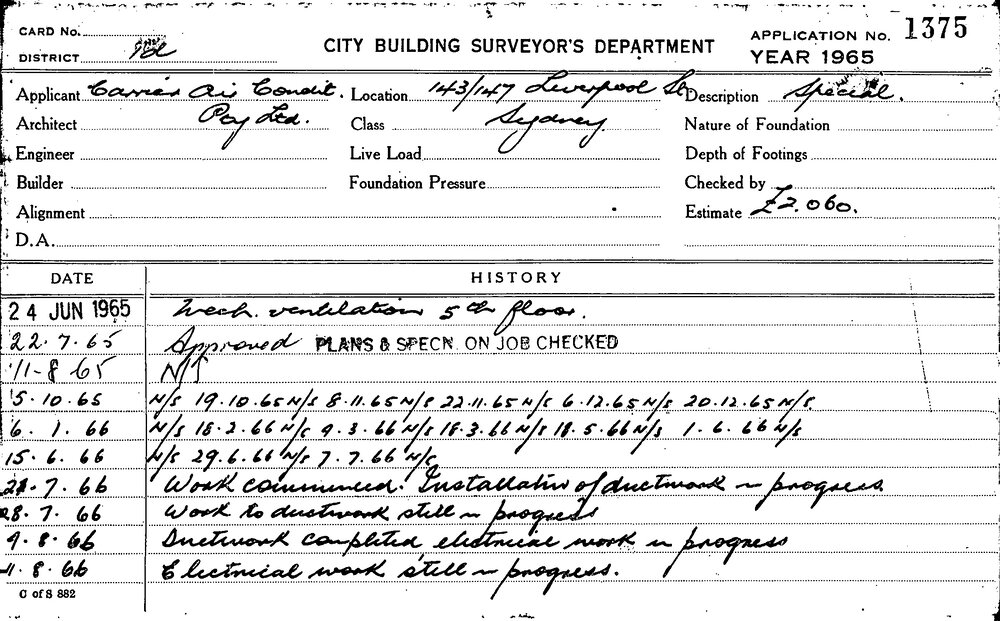 CARD No.
DISTRICT
CITY BUILDING SURVEYOR'S DEPARTMENT
APPLICATION No. 1375
YEAR 1965
Applicant Carrier Air Condit. Location 143/147 Liverpool St Description Special.
Architect Pty Ltd. Class Sydney Nature of Foundation
Engineer Live Load Depth of Footings
Builder Foundation Pressure Checked by
Alignment Estimate £2.060.
D.A.
DATE HISTORY
24 JUN 1965 Mech. ventilation 5th floor.
22.7.65 Approved PLANS & SPECN. ON JOB CHECKED
11-8-65 N/S
5.10.65 N/S 19.10.65 N/S 8.11.65 N/S 22.11.65 N/S 6.12.65 N/S 20.12.65 N/S
6.1.66 N/S 18.2.66 N/S 9.3.66 N/S 18.3.66 N/S 18.5.66 N/S 1.6.66 N/S
15.6.66 N/S 29.6.66 N/S 7.7.66 N/S
21.7.66 Work commenced. Installation of ductwork in progress
28.7.66 Work to ductwork still in progress
9.8.66 Ductwork completed, electrical work in progress
11.8.66 Electrical work still in progress.
C of S 882